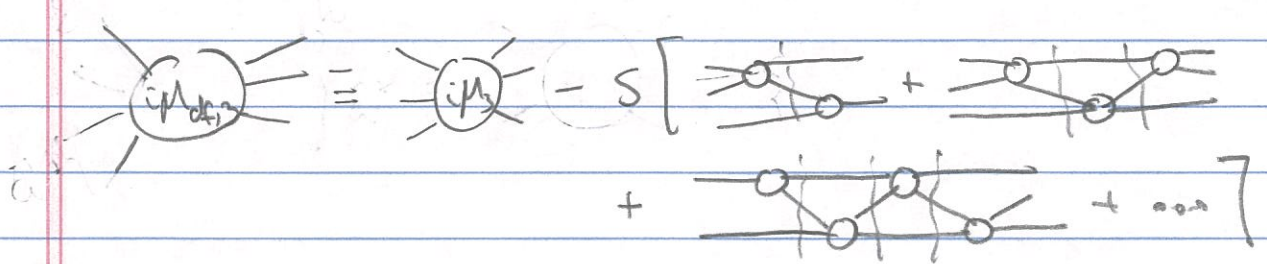 iM_{df,3} ≡ iM_3 - S [ +
+ + ... ]